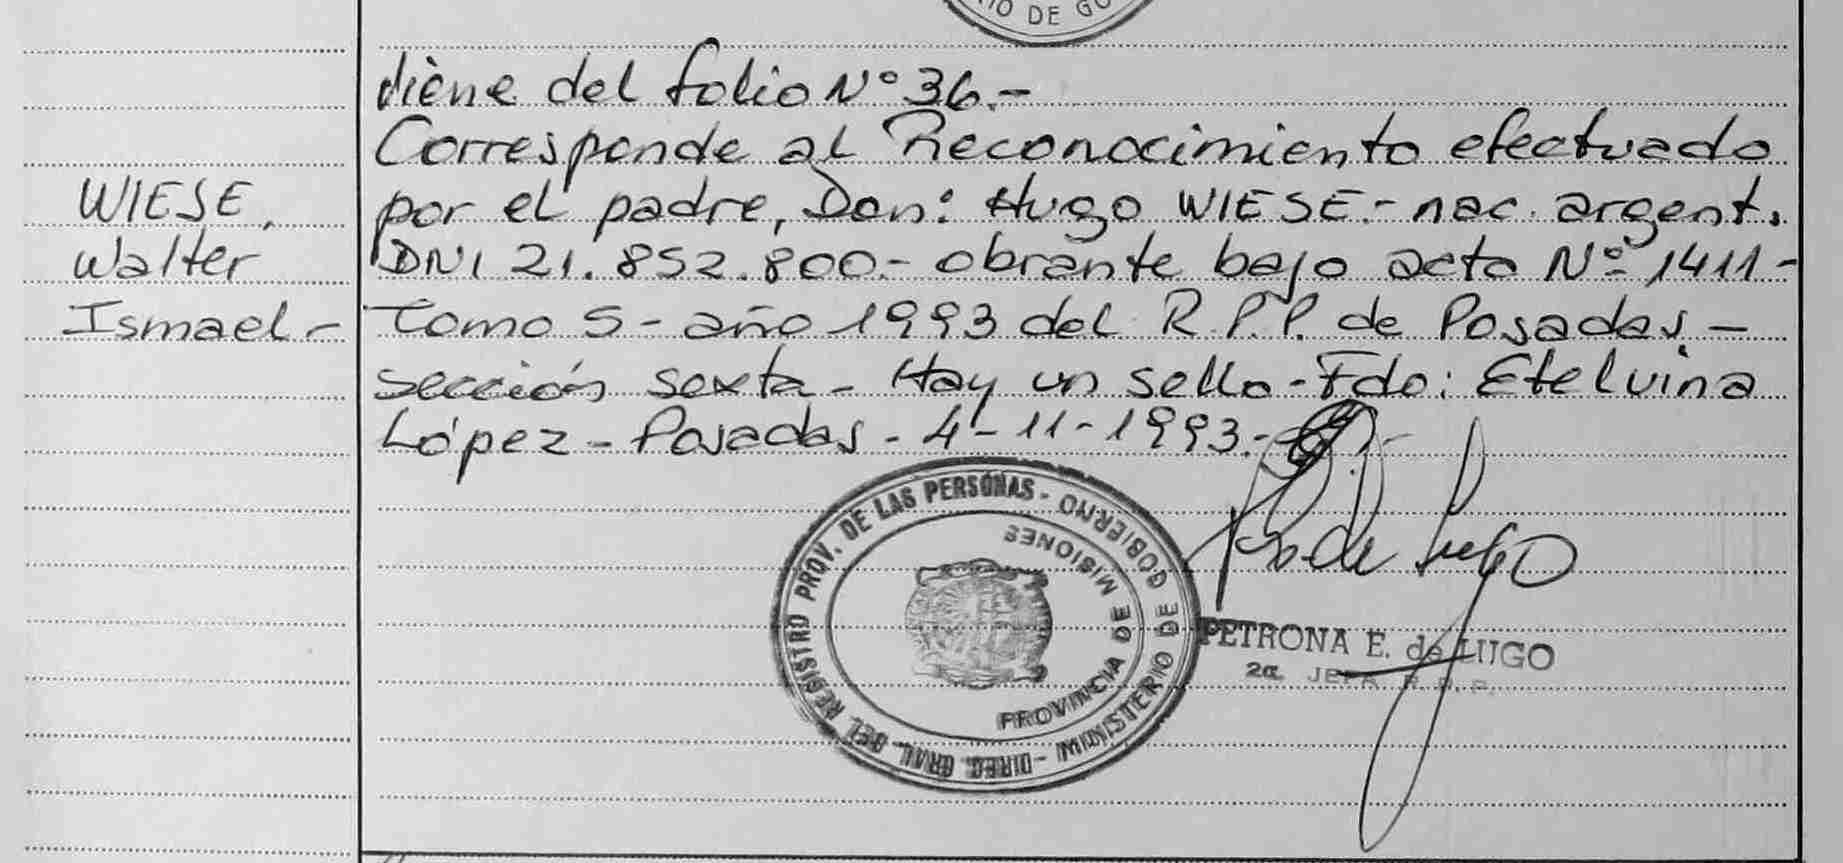 IO DE GO
Viene del folio N° 36.-
Corresponde al Reconocimiento efectuado
por el padre, Don: Hugo WIESE.- nac. argent.
DNI 21.852.800.- obrante bajo acta N° 1411-
tomo 5 - año 1993 del R.P.P. de Posadas.-
sección sexta - Hay un sello - Fdo: Etelvina
López - Posadas - 4-11-1993.-
WIESE,
Walter
Ismael.-
DIREC. GRAL. DEL REGISTRO PROV. DE LAS PERSONAS -
MINISTERIO DE GOBIERNO
PROVINCIA DE MISIONES
de Lugo
PETRONA E. de LUGO
2a. JEFA R. P. P.